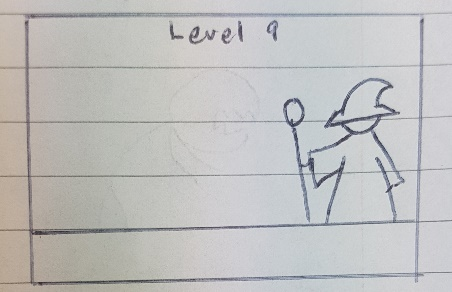 Level 9